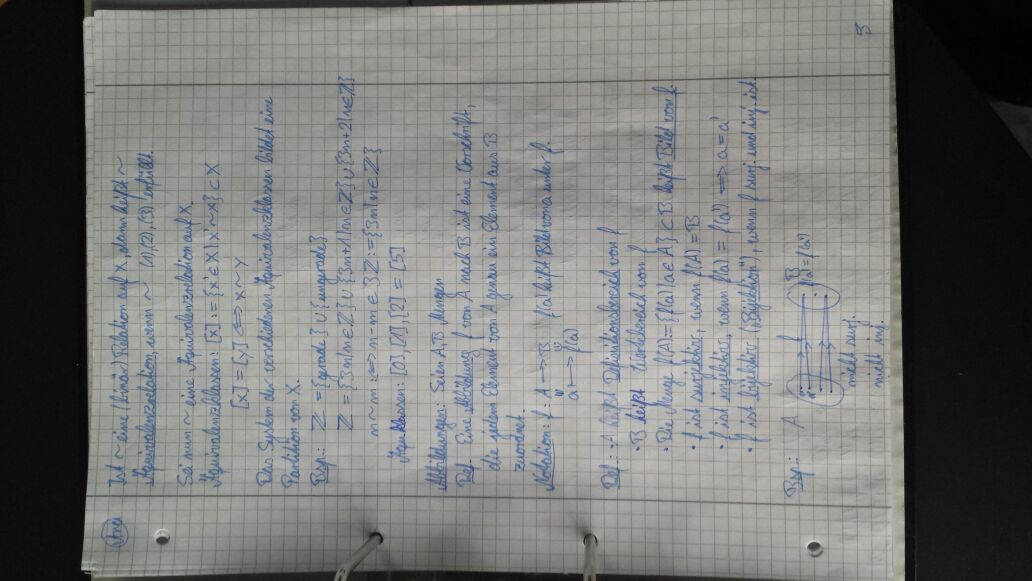 Ist ~ eine (binäre) Relation auf X, dann heißt ~
Äquivalenzrelation, wenn ~ (1), (2), (3) erfüllt.
Sei nun ~ eine Äquivalenzrelation auf X.
Äquivalenzklassen: [x] := {x' ∈ X | x' ~ x} ⊂ X
[x] = [y] ⟺ x ~ y
Das System der verschiedenen Äquivalenzklassen bildet eine
Partition von X.
Bsp.: ℤ = {gerade} ∪ {ungerade}
ℤ = {3n | n ∈ ℤ} ∪ {3n+1 | n ∈ ℤ} ∪ {3n+2 | n ∈ ℤ}
n ~ m :⟺ n - m ∈ 3ℤ := {3n | n ∈ ℤ}
Äquiklassen: [0], [1], [2] = [5]
Abbildungen: Seien A, B Mengen
Def. Eine Abbildung f von A nach B ist eine Vorschrift,
die jedem Element von A genau ein Element aus B
zuordnet.
Notation: f: A → B f(a) heißt Bild von a unter f.
a ↦ f(a)
Def.: · A heißt Definitionsbereich von f
· B heißt Wertebereich von f
· Die Menge f(A) := {f(a) | a ∈ A} ⊂ B heißt Bild von f.
· f ist surjektiv, wenn f(A) = B
· f ist injektiv, wenn f(a) = f(a') ⟹ a = a'
· f ist bijektiv ("Bijektion"), wenn f surj. und inj. ist.
Bsp.: A f B
f(a) = f(a')
nicht surj.
nicht inj.
3